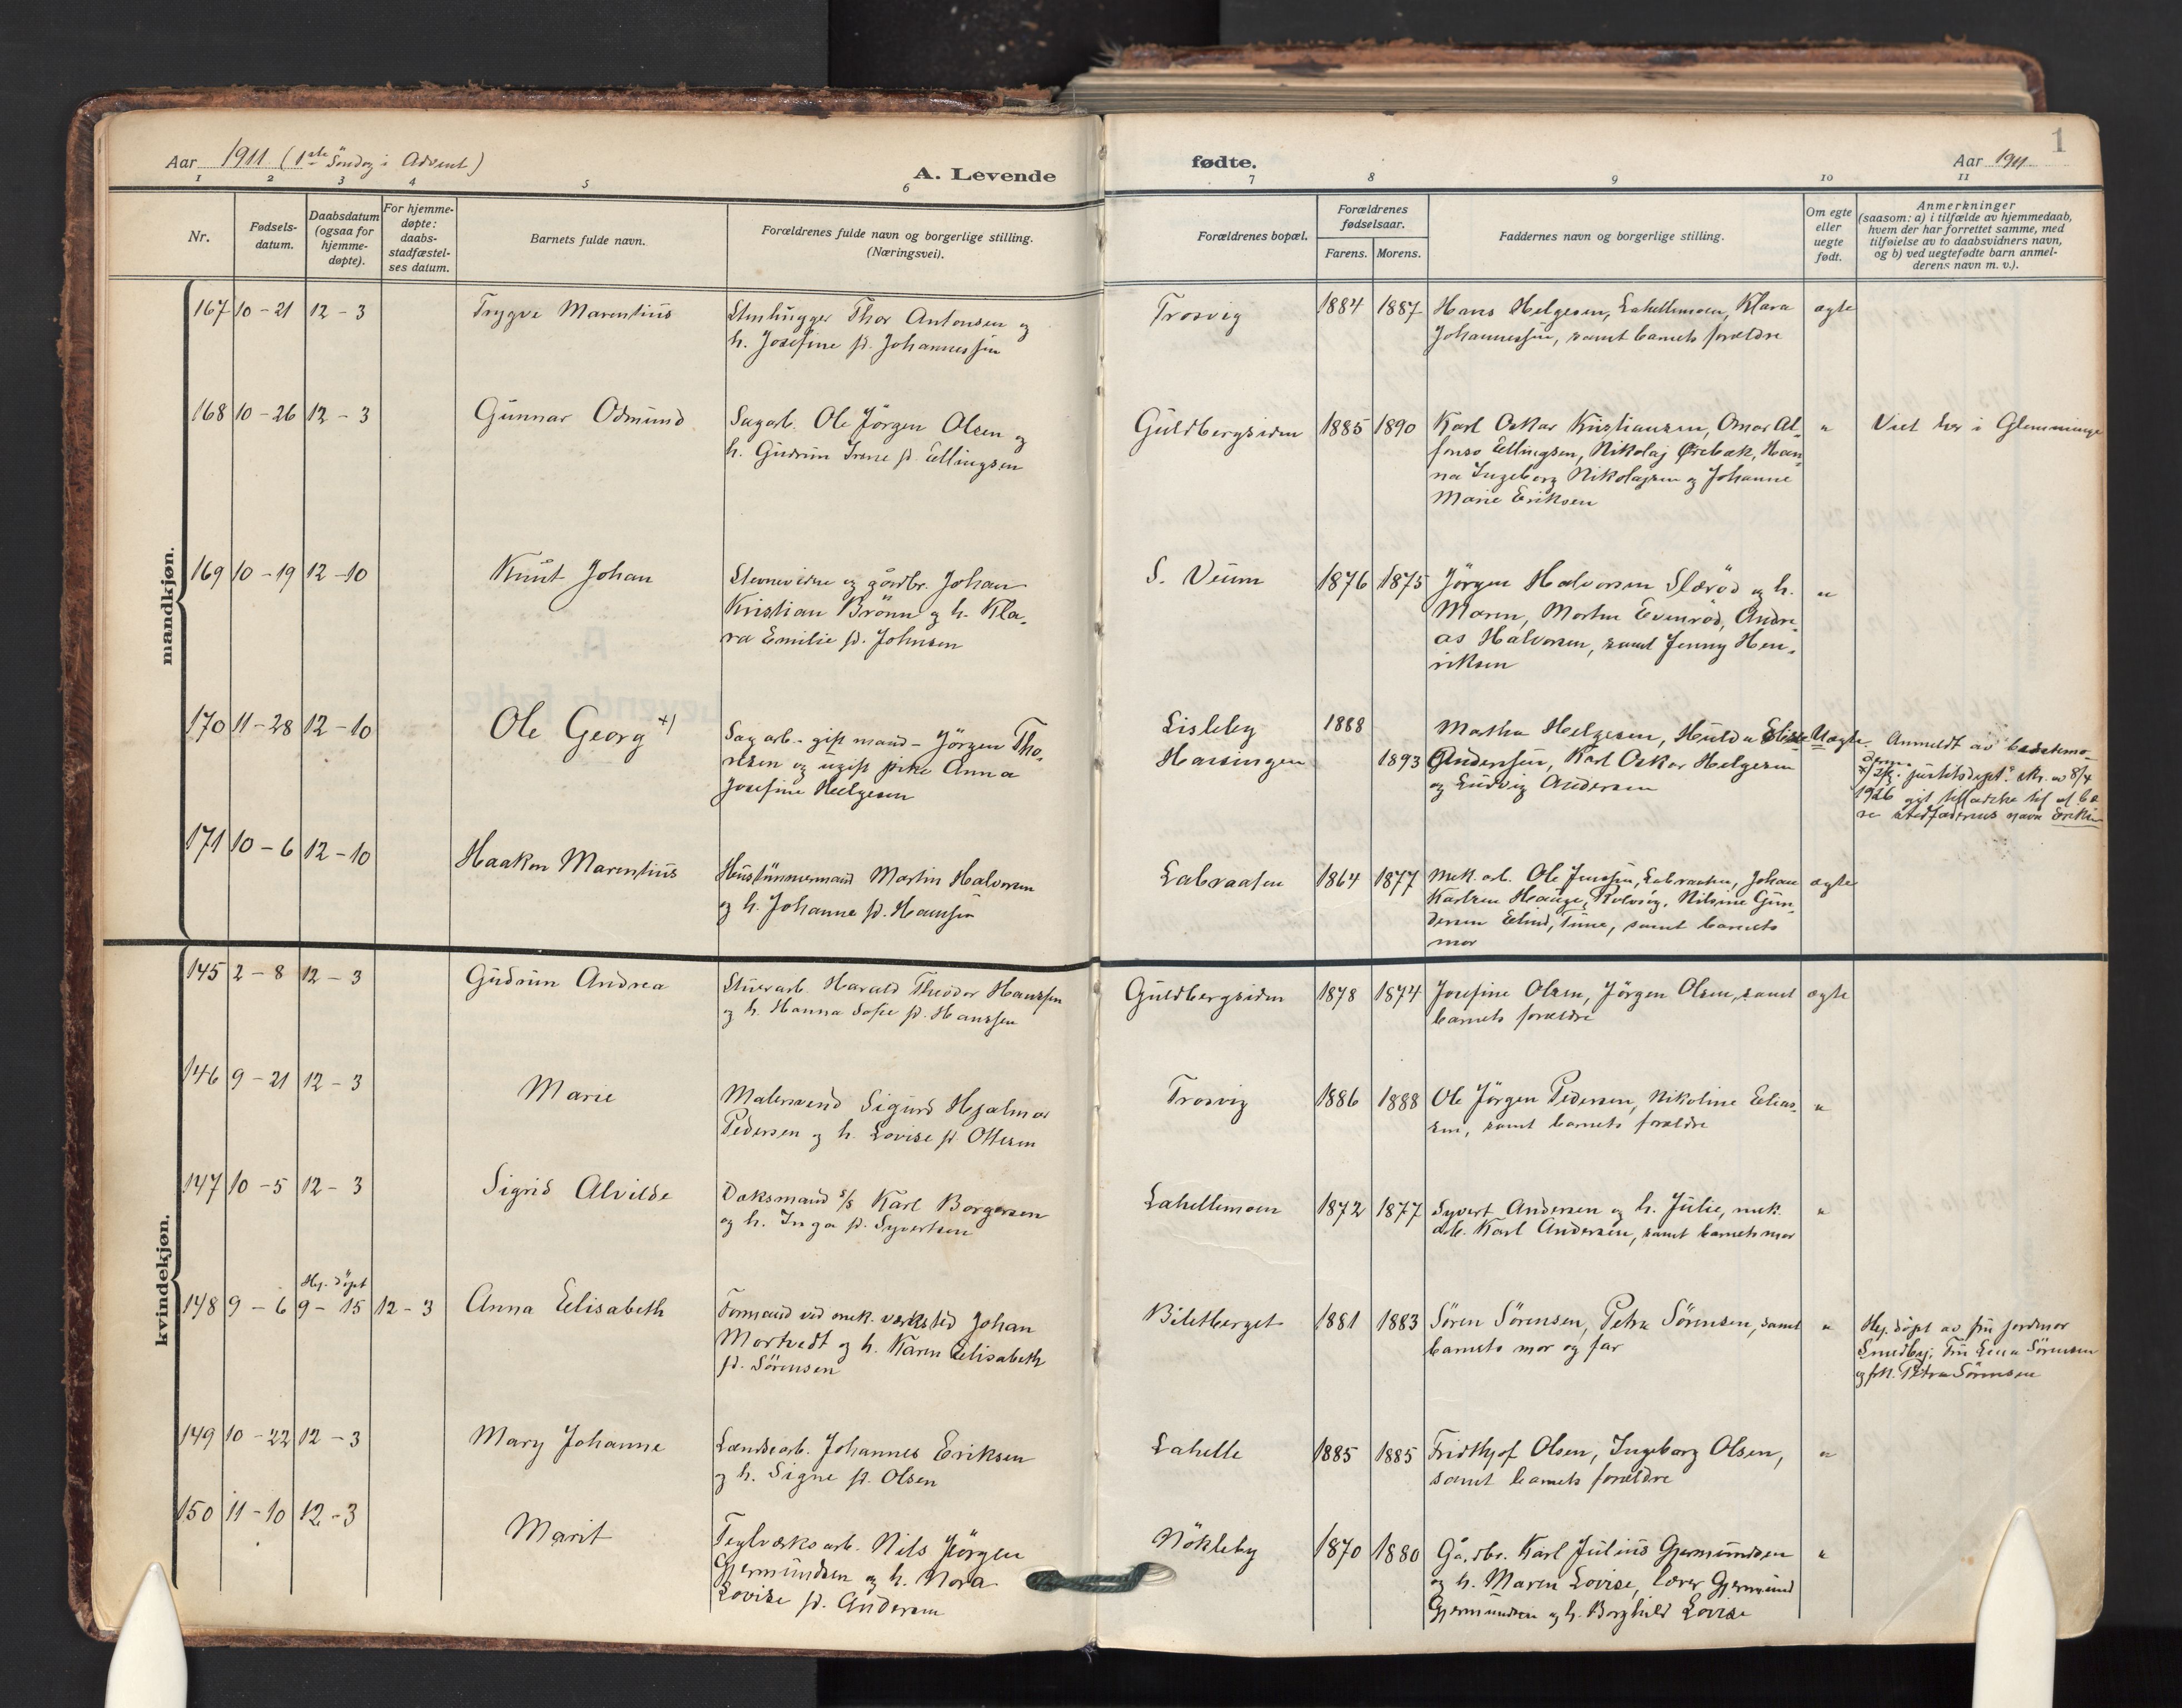 Aar 1911. (1ste Söndag i Advent)
A. Levende
fødte.
1
Aar 1911
1 2 3 4 5 6 7 8 9 10 11
Nr.
Fødsels-
datum.
Daabsdatum
(ogsaa for
hjemme-
døpte).
For hjemme-
døpte:
daabs-
stadfæstel-
ses datum.
Barnets fulde navn.
Forældrenes fulde navn og borgerlige stilling.
(Næringsvei).
Forældrenes bopæl.
Forældrenes
fødselsaar.
Farens. Morens.
Faddernes navn og borgerlige stilling.
Om egte
eller
uegte
født.
Anmerkninger
(saasom: a) i tilfælde av hjemmedaab,
hvem der har forrettet samme, med
tilføielse av to daabsvidners navn,
og b) ved uegtefødte barn anmel-
derens navn m. v.).
mandkjøn.
167 10-21 12-3 Trygve Marentius
Stenhugger Thor Antonsen og
h. Josefine fd. Johannessen
Trosvig 1884 1887
Hans Helgesen, Lahellemoen, Klara
Johannessen, samt barnets forældre
ægte
168 10-26 12-3 Gunnar Odmund
Sagarb. Ole Jörgen Olsen og
h. Gudrun Irene fd. Ellingsen
Guldbergsiden 1885 1890
Karl Oskar Kristiansen, Omar Al-
fonso Ellingsen, Nikolaj Ørebæk, Han-
na Ingeborg Nikolaysen og Johanne
Marie Eriksen
"
Viet her i Glemminge
169 10-19 12-10 Knut Johan
Stevnevidne og gårdbr. Johan
Kristian Brönn og h. Kla-
ra Emilie fd. Johnsen
S. Veum 1876 1875
Jörgen Halvorsen Slæröd og h.
Maren, Morten Evenröd, Andre-
as Halvorsen, samt Jenny Hen-
riksen
"
170 11-28 12-10 Ole Georg +)
Sagarb. - gift mand - Jörgen Tho-
resen og ugift pike Anna
Josefine Helgesen
Lisleby 1888
Hassingen 1893
Martha Helgesen, Hulda Elise
Andersen, Karl Oskar Helgesen
og Ludvig Andersen
Uægte.
Anmeldt av bedstemo-
deren.
+) Ifg. justitsdept.s skr. av 8/4
1926 git tilladelse til at bæ-
re stedfaderens navn Eriksen
171 10-6 12-10 Haakon Marentius
Hustømmermand Martin Halvorsen
og h. Johanne fd. Hansen
Labraaten 1864 1877
Mek. arb. Ole Jensen, Labraaten, Johan
Karlsen Hauge, Rolvsöy, Nilsine Gun-
dersen Elind, Tune, samt barnets
mor
ægte
kvindekjøn.
145 2-8 12-3 Gudrun Andrea
Stuerarb. Harald Theodor Hanssen
og h. Hanna Sofie fd. Hanssen
Guldbergsiden 1878 1874
Josefine Olsen, Jörgen Olsen, samt
barnets forældre
ægte
146 9-21 12-3 Marie
Malersvend Sigurd Hjalmar
Pedersen og h. Lovise fd. Ottesen
Trosvig 1886 1888
Ole Jörgen Pedersen, Nikoline Elias-
sen, samt barnets forældre
"
147 10-5 12-3 Sigrid Alvilde
Daksmand s/s Karl Borgersen
og h. Inga fd. Syvertsen
Lahellemoen 1872 1877
Syvert Andersen og h. Julie, mek.
arb. Karl Andersen, samt barnets mor
"
148 9-6 Hj. döpt 9-15 12-3 Anna Elisabeth
Formand ved mek. verksted Johan
Mortvedt og h. Karen Elisabeth
fd. Sörensen
Biletberget 1881 1883
Sören Sörensen, Petra Sörensen, samt
barnets mor og far
"
Hj. döpt av fru jordmor
Smedby; Fru Lina Sörensen
og frk. Petra Sörensen
149 10-22 12-3 Mary Johanne
Landsearb. Johannes Eriksen
og h. Signe fd. Olsen
Lahelle 1885 1885
Fridthjof Olsen, Ingeborg Olsen,
samt barnets forældre
"
150 11-10 12-3 Marit
Teglverksarb. Nils Jörgen
Gjermundsen og h. Nora
Lovise fd. Andersen
Nökleby 1870 1880
Gårdbr. Karl Julius Gjermundsen
og h. Maren Lovise, lærer Gjermund
Gjermundsen og h. Borghild Lovise
"